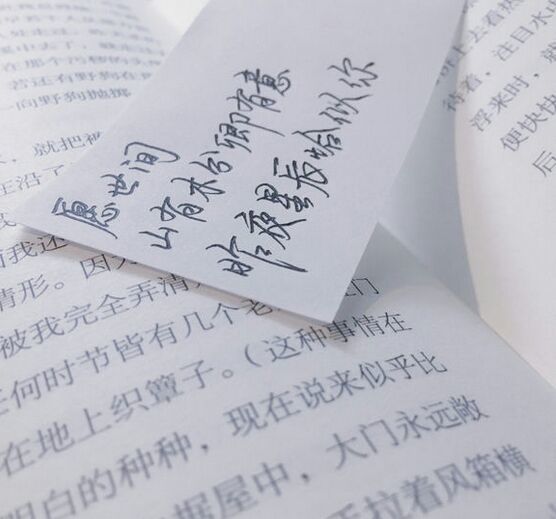 愿世间
山有木兮卿有意
昨夜星辰恰似你
在那个污秽的
若还有野狗在
向野狗抛掷
就把被
汪沿了
而我还
情形。因
被我完全弄清
任何时节皆有几个老
门
在地上织簟子。（这种事情在
明白的种种，现在说来似乎比
据屋中，大门永远敞
拉着风箱横
上去看然
待着，注目水
浮来时，就
便快快
后